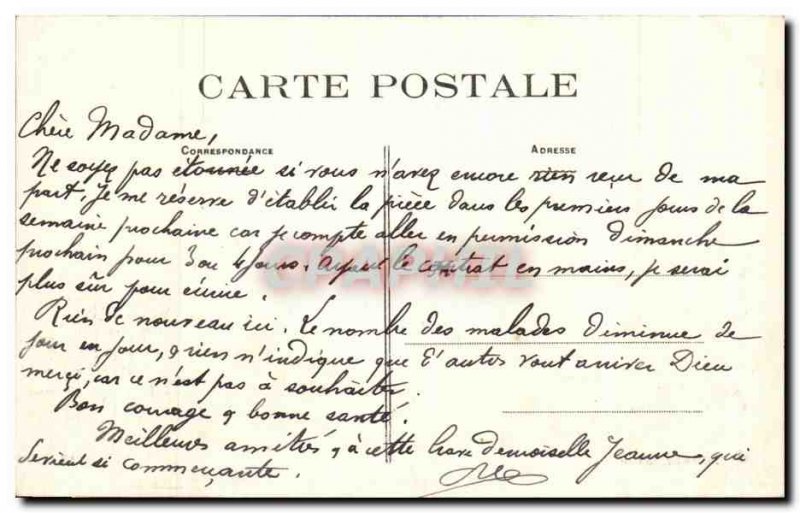 CARTE POSTALE
Chère Madame,
CORRESPONDANCE
ADRESSE
Ne soyez pas étonnée si vous n'avez encore rien reçu de ma
part. Je me réserve d'établir la pièce dans les premiers jours de la
semaine prochaine car je compte aller en permission Dimanche
prochain pour 3 ou 4 jours. Ayant le contrat en mains, je serai
plus sûr pour
Rien de nouveau ici. Le nombre des malades diminue de
jour en jour, & rien n'indique que d'autres vont arriver Dieu
merçi, car ce n'est pas à souhaiter.
Bon courage & bonne santé.
Meilleures amitiés, & à cette demoiselle Jeanne, qui
devient si commerçante.
CPAPHIL